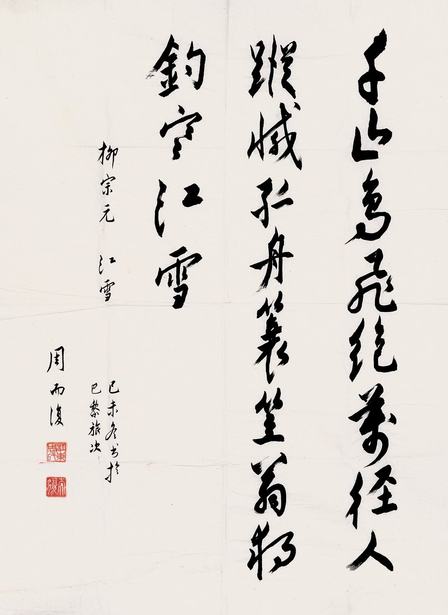 千山鳥飛絕萬徑人
蹤滅孤舟簑笠翁獨
釣寒江雪
柳宗元 江雪
己未冬书於
巴黎旅次
周而復